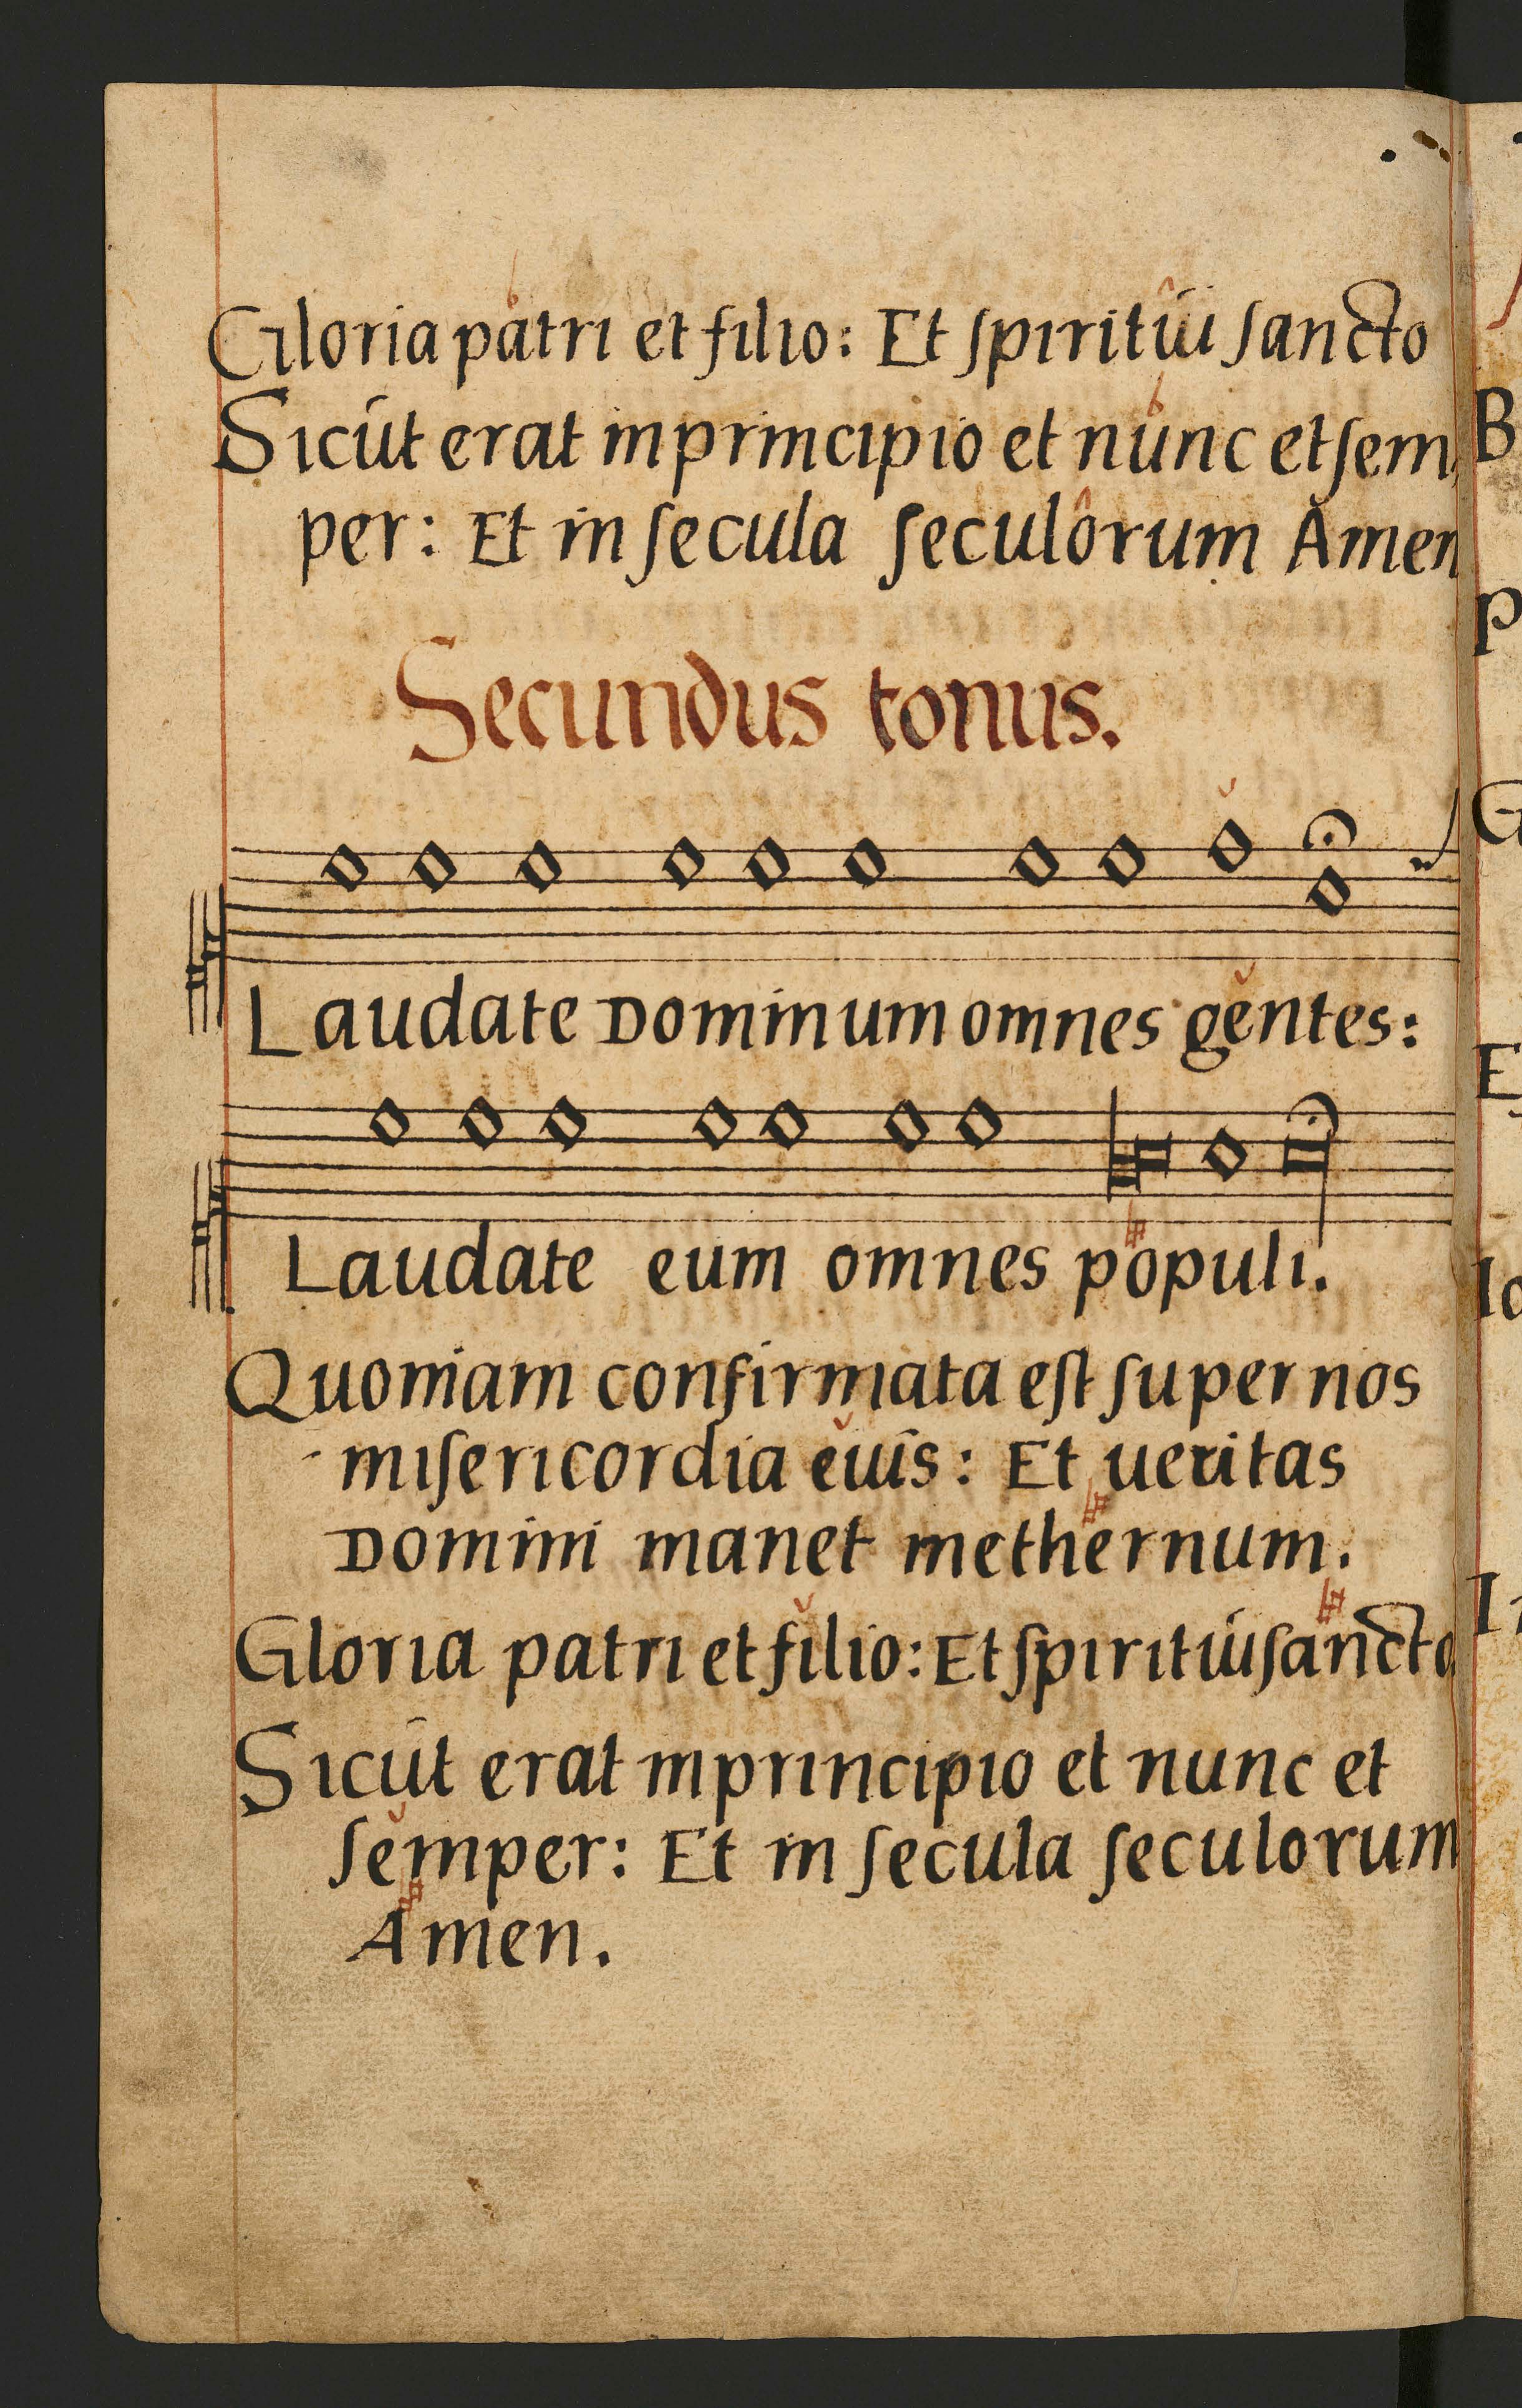 Gloria patri et filio: Et ſpiritui ſancto
Sicut erat in principio et nunc et ſem
per: Et in ſecula ſeculorum Amen
Secundus tonus.
Laudate Dominum omnes gentes:
Laudate eum omnes populi.
Quoniam confirmata eſt ſuper nos
miſericordia euis: Et ueritas
Domini manet inethernum.
Gloria patri et filio: Et ſpiritui ſancto
Sicut erat in principio et nunc et
ſemper: Et in ſecula ſeculorum
Amen.